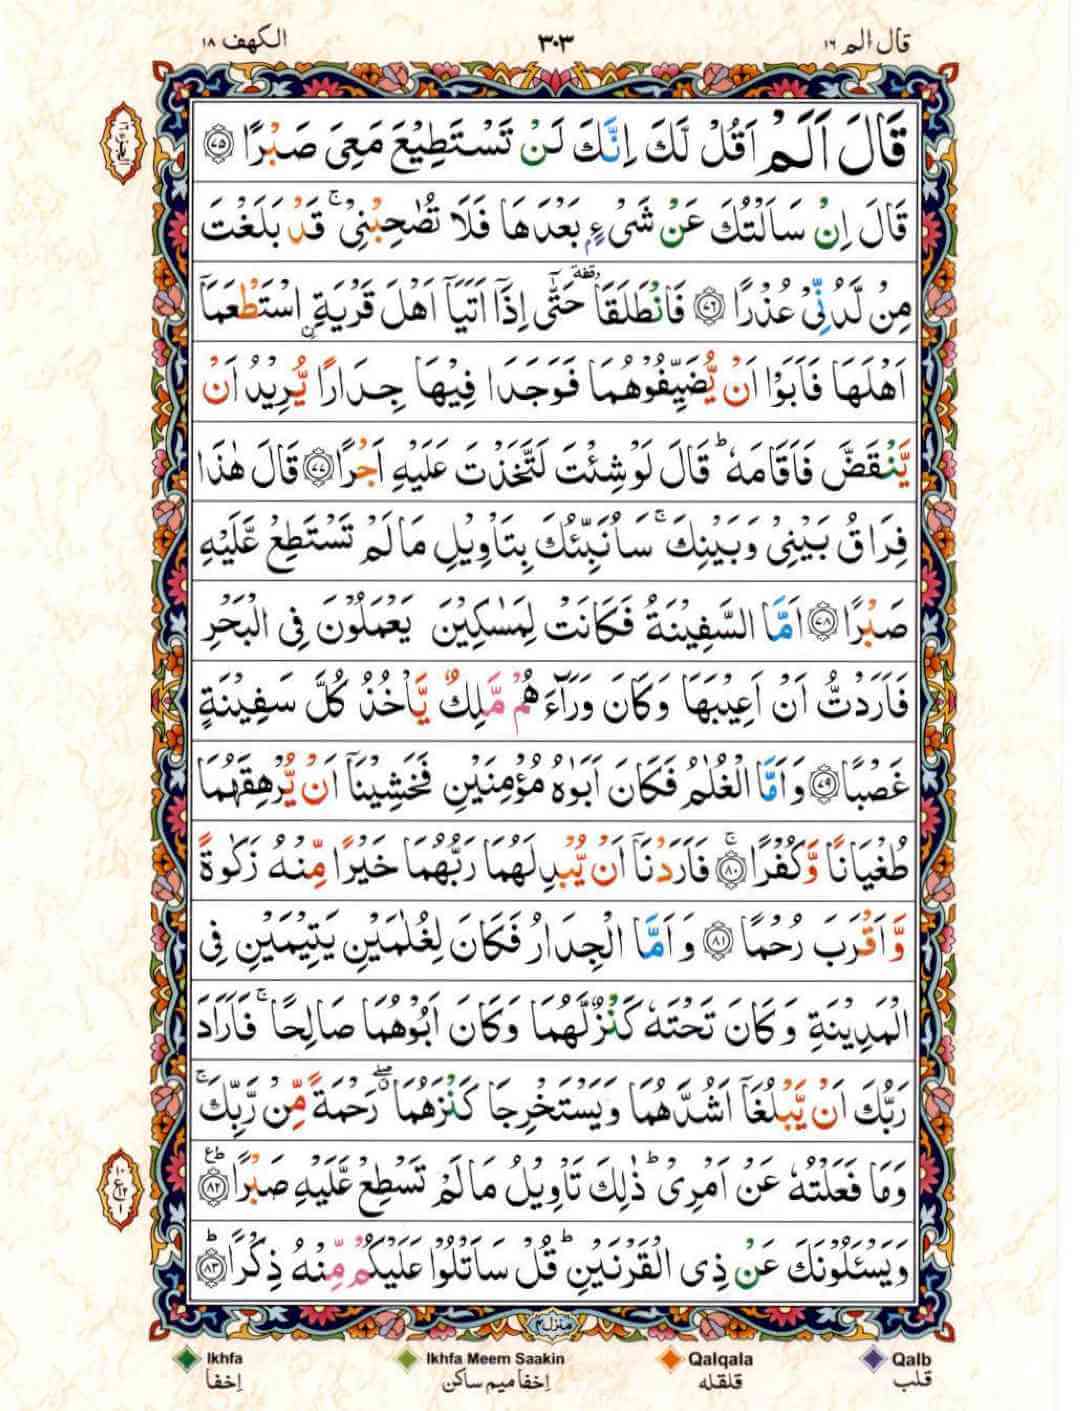 قال الم ۱۶ ۳۰۳ الكهف ۱۸
قَالَ اَلَمْ اَقُلْ لَّكَ اِنَّكَ لَنْ تَسْتَطِيْعَ مَعِیَ صَبْرًا ﴿۷۵﴾
قَالَ اِنْ سَاَلْتُكَ عَنْ شَیْءٍۭ بَعْدَهَا فَلَا تُصٰحِبْنِیْ ۚ قَدْ بَلَغْتَ
مِنْ لَّدُنِّیْ عُذْرًا ﴿۷۶﴾ فَانْطَلَقَا ٝ حَتّٰۤی اِذَاۤ اَتَیَاۤ اَهْلَ قَرْیَةِ ِ۟اسْتَطْعَمَاۤ
اَهْلَهَا فَاَبَوْا اَنْ یُّضَیِّفُوْهُمَا فَوَجَدَا فِیْهَا جِدَارًا یُّرِیْدُ اَنْ
یَّنْقَضَّ فَاَقَامَهٗ ؕ قَالَ لَوْ شِئْتَ لَتَّخَذْتَ عَلَیْهِ اَجْرًا ﴿۷۷﴾ قَالَ هٰذَا
فِرَاقُ بَیْنِیْ وَبَیْنِكَ ۚ سَاُنَبِّئُكَ بِتَاْوِیْلِ مَا لَمْ تَسْتَطِعْ عَّلَیْهِ
صَبْرًا ﴿۷۸﴾ اَمَّا السَّفِیْنَةُ فَكَانَتْ لِمَسٰكِیْنَ یَعْمَلُوْنَ فِی الْبَحْرِ
فَاَرَدْتُّ اَنْ اَعِیْبَهَا وَكَانَ وَرَآءَهُمْ مَّلِكٌ یَّاْخُذُ كُلَّ سَفِیْنَةٍ
غَصْبًا ﴿۷۹﴾ وَاَمَّا الْغُلٰمُ فَكَانَ اَبَوٰهُ مُؤْمِنَیْنِ فَخَشِیْنَاۤ اَنْ یُّرْهِقَهُمَا
طُغْیَانًا وَّكُفْرًا ﴿۸۰﴾ ۚ فَاَرَدْنَاۤ اَنْ یُّبْدِلَهُمَا رَبُّهُمَا خَیْرًا مِّنْهُ زَكٰوةً
وَّاَقْرَبَ رُحْمًا ﴿۸۱﴾ وَاَمَّا الْجِدَارُ فَكَانَ لِغُلٰمَیْنِ یَتِیْمَیْنِ فِی
الْمَدِیْنَةِ وَكَانَ تَحْتَهٗ كَنْزٌ لَّهُمَا وَكَانَ اَبُوْهُمَا صَالِحًا ۚ فَاَرَادَ
رَبُّكَ اَنْ یَّبْلُغَاۤ اَشُدَّهُمَا وَیَسْتَخْرِجَا كَنْزَهُمَا ۖ رَحْمَةً مِّنْ رَّبِّكَ ۚ
وَمَا فَعَلْتُهٗ عَنْ اَمْرِیْ ؕ ذٰلِكَ تَاْوِیْلُ مَا لَمْ تَسْطِعْ عَّلَیْهِ صَبْرًا ﴿۸۲﴾ ؕ ع
وَیَسْـَٔلُوْنَكَ عَنْ ذِی الْقَرْنَیْنِ ؕ قُلْ سَاَتْلُوْا عَلَیْكُمْ مِّنْهُ ذِكْرًا ﴿۸۳﴾ ؕ
منزل ۴
Ikhfa Ikhfa Meem Saakin Qalqala Qalb
اخفا اخفا میم ساکن قلقلہ قلب